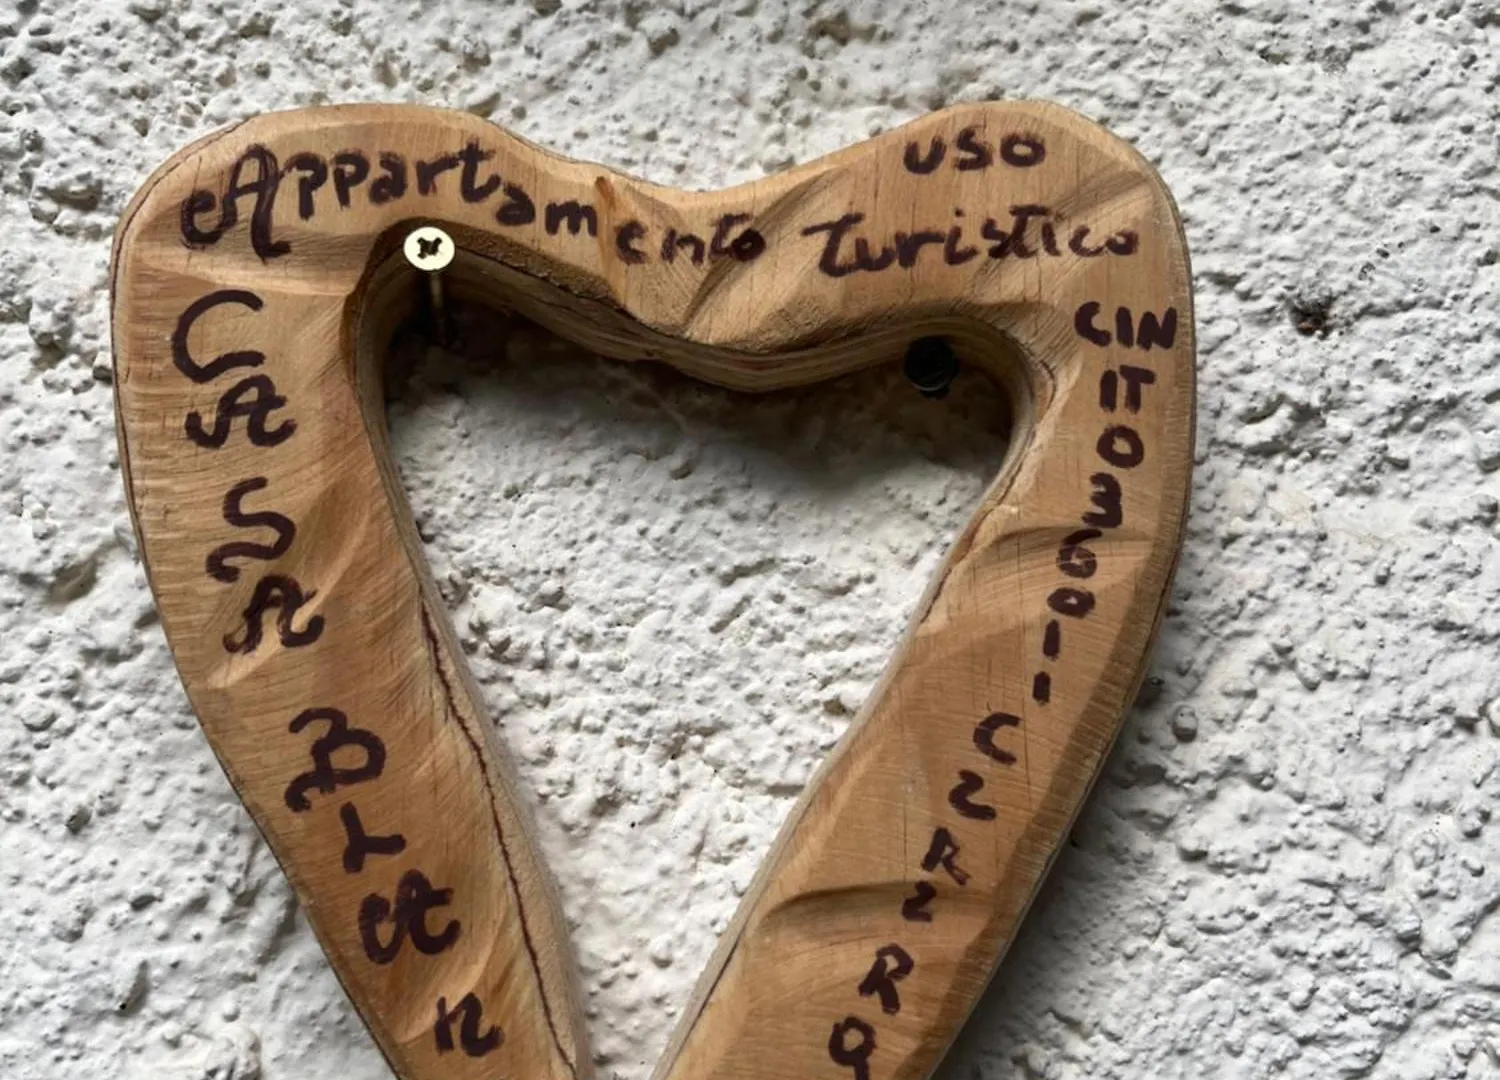 Appartamento uso
turistico
CASA BLAN
CIN
IT036011C2R2RQ